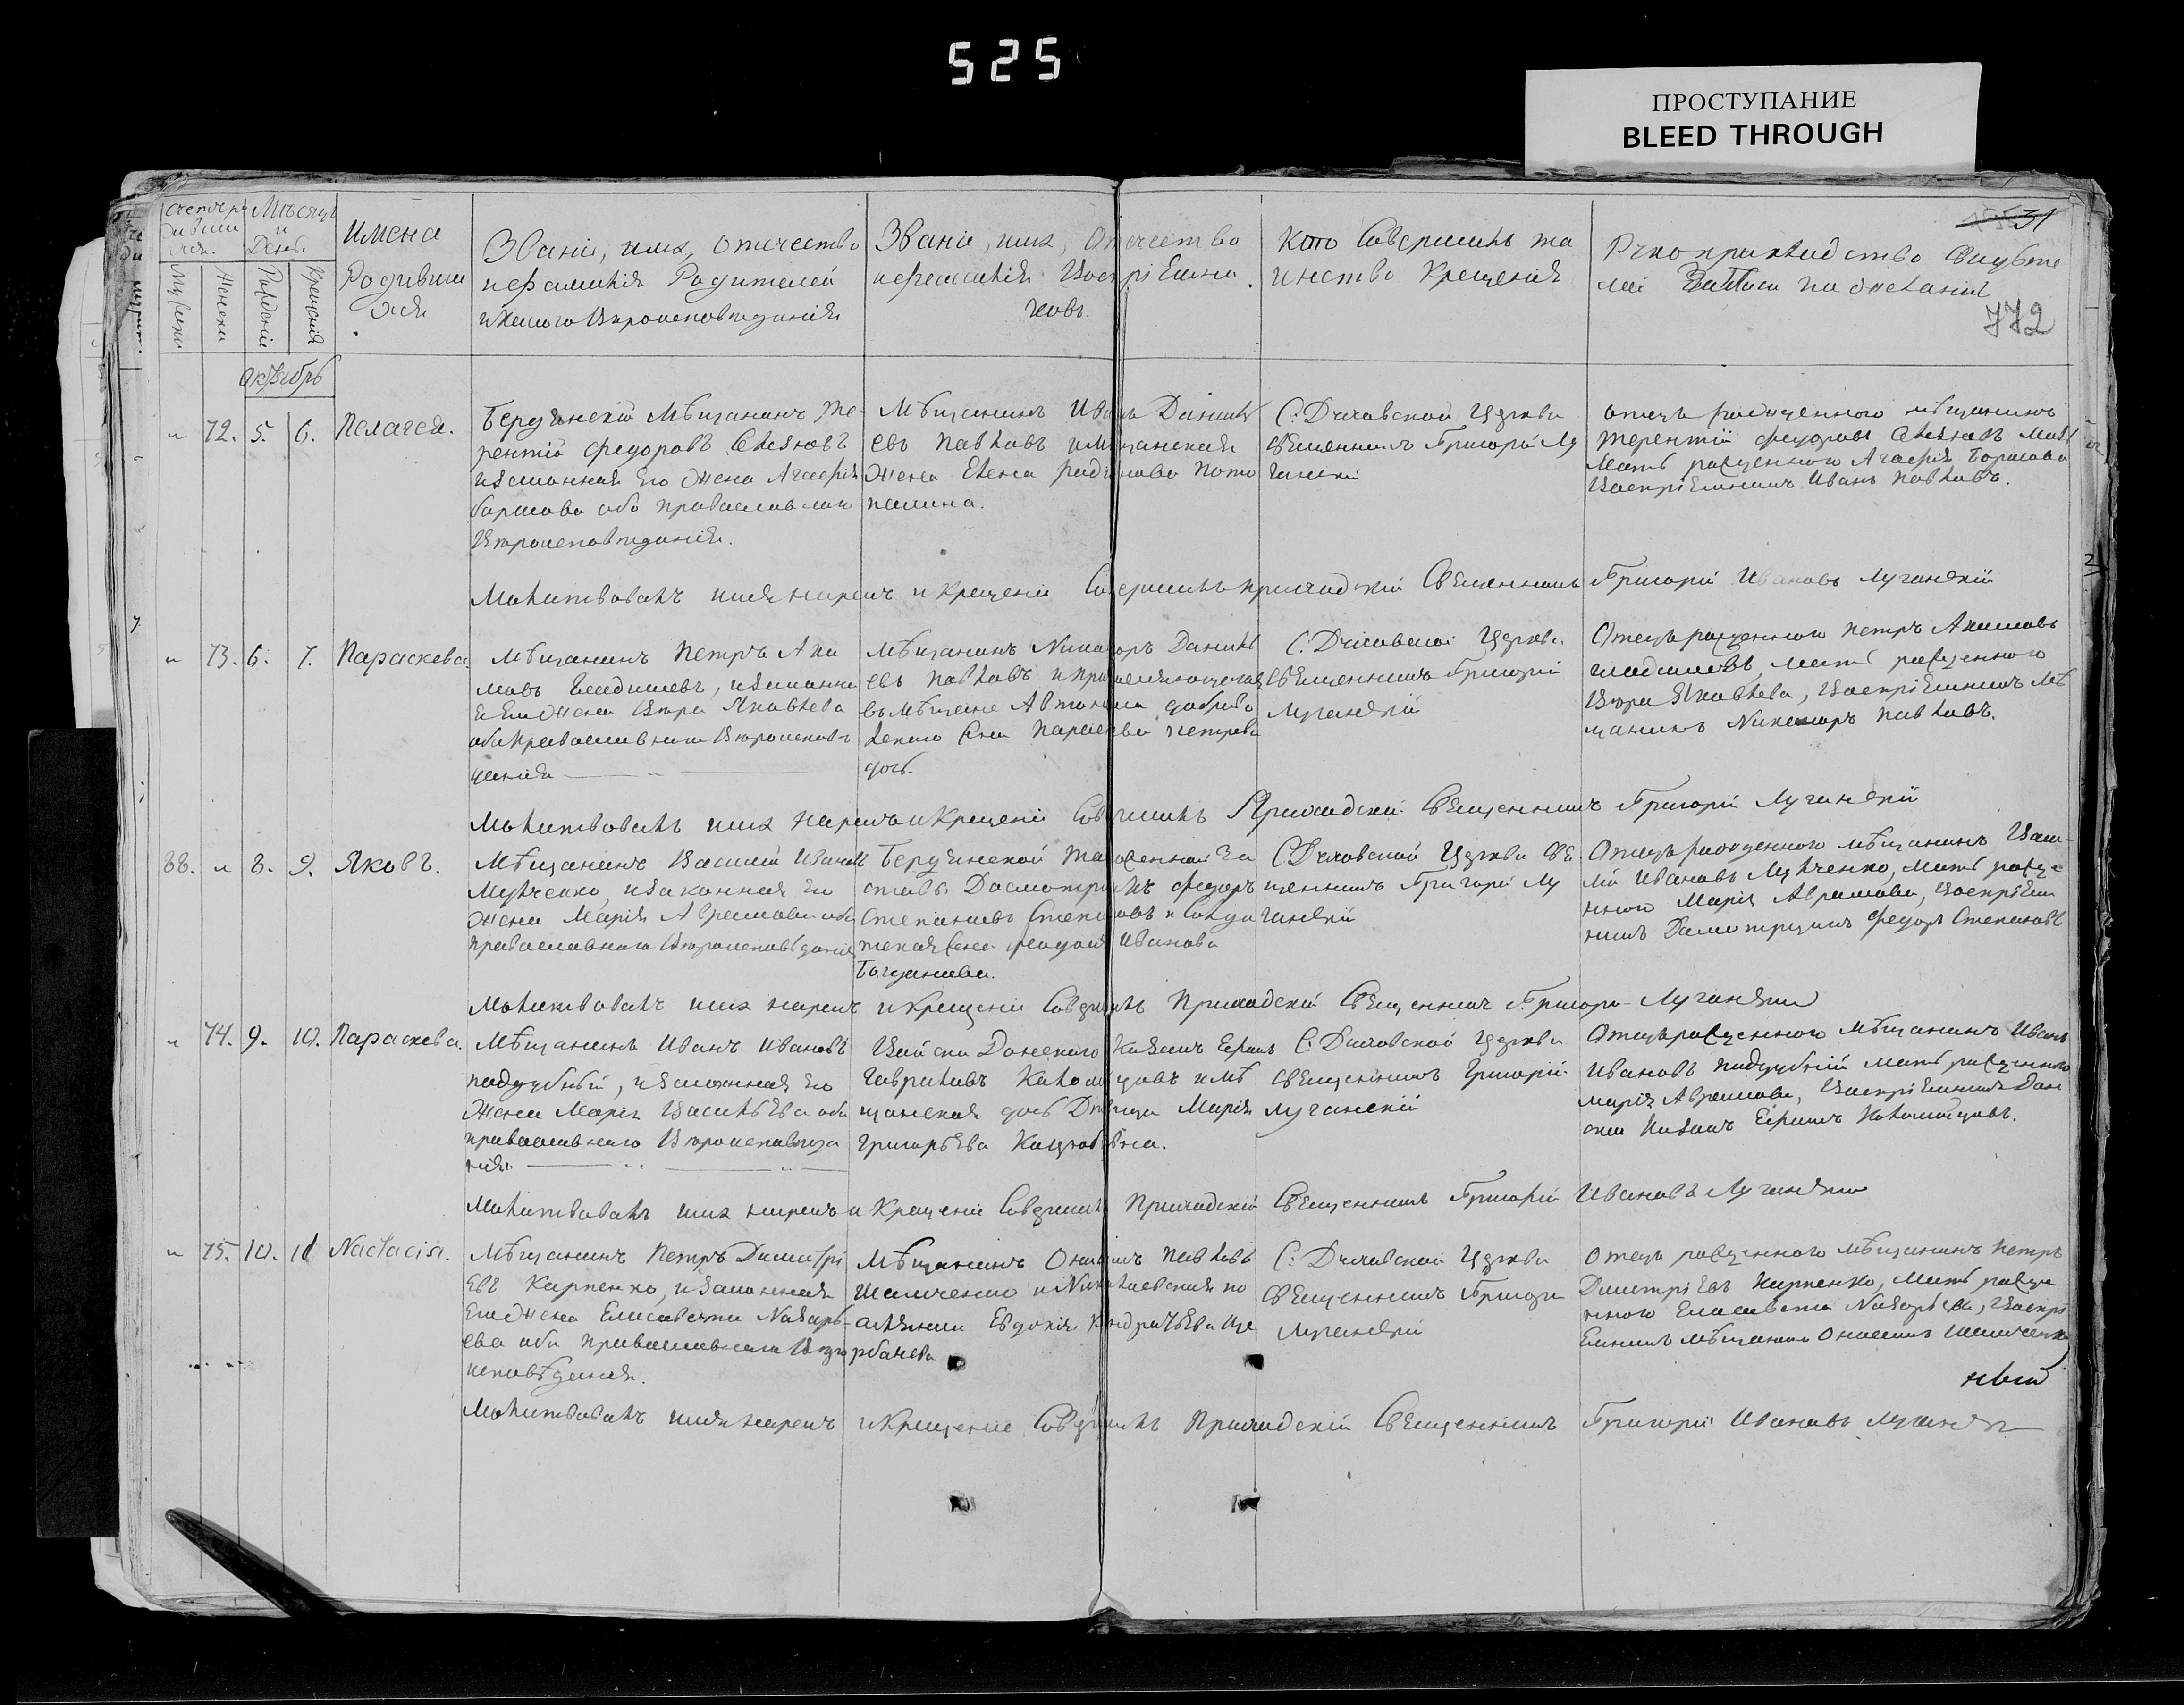 525
ПРОСТУПАНИЕ
BLEED THROUGH
31
772
Счетъ ро
дивши
хся.
Мѣсяцъ
и
День.
Мужеска
Женска
Рожденіе
Крещенія
Имена
Родивши
хся
Званіе, имя, отечество
и фамилія Родителей
и какого Вѣроисповѣданія
Званіе, имя, отечество
и фамилія Воспріемни
ковъ.
Кто Совершилъ та
инство Крещенія
Рукоприкладство Свидѣте
лей записи по желанію
Октябрь
72. 5. 6. Пелагея.
Бердянскій Мѣщанинъ Те-
рентій Федоровъ
и законная его жена Агафія
Борисова оба православнаго
Вѣроисповѣданія.
Мѣщанинъ Иванъ Данил
евъ Павловъ и мѣщанская
жена Елена
С. Духовской Церкви
священникъ Григорій Лу
ганскій
Отецъ рожденного мѣщанинъ
Терентій Федоровъ
Мать рожденного Агафія Борисова
Воспріемникъ Иванъ Павловъ.
Молитвовалъ имя нарекъ и Крещеніе Совершилъ приходскій Священникъ Григорій Ивановъ Луганскій
73. 6. 7. Параскева
Мѣщанинъ Петръ Аки
мовъ и законна
я его жена Вѣра Яковлева
оба православнаго Вѣроисповѣ
данія
Мѣщанинъ Никаноръ Данил
евъ Павловъ и
въ мѣщане
Петрова
дочь.
С. Духовской Церкви
Священникъ Григорій
Луганскій
Отецъ рожденного Петръ Акимовъ
мать рожденного
Вѣра Яковлева, Воспріемникъ мѣ
щанинъ Никаноръ Павловъ.
Молитвовалъ имя нарекъ и Крещеніе Совершилъ Приходскій Священникъ Григорій Луганскій
88. 8. 9. Яковъ.
Мѣщанинъ Василій Ивановъ
и законная его
жена Марія Аврамова оба
православнаго Вѣроисповѣданія
Бердянской Таможенной За
ставы Досмотрщикъ Федоръ
Степановъ и Солда
тская жена Ивановa
Богданова.
С. Духовской Церкви Свя
щенникъ Григорій Лу
ганскій
Отецъ рожденного мѣщанинъ Васи-
лій Ивановъ мать рожде
нного Марія Аврамова, Воспріем
никъ Досмотрщикъ Федоръ Степановъ
Молитвовалъ имя нарекъ и Крещеніе Совершилъ Приходскій Священникъ Григорій Луганскій
74. 9. 10. Параскева.
Мѣщанинъ Иванъ Ивановъ
Поддубный, и законная его
жена Марія Васильева оба
православнаго Вѣроисповѣда
нія
Войска Донскаго Казакъ Ефимъ
Гавриловъ Коломійцовъ и мѣ
щанская дочь Дѣвица Марія
Григорьева
С. Духовской Церкви
Священникъ Григорій
Луганскій
Отецъ рожденного Мѣщанинъ Иванъ
Ивановъ Поддубній мать рожденного
Марія Аврамова, Воспріемникъ Дон
ской Казакъ Ефимъ Коломійцовъ.
Молитвовалъ имя нарекъ и Крещеніе Совершилъ Приходскій Священникъ Григорій Ивановъ Луганскій
75. 10. 11 Настасія.
Мѣщанинъ Петръ Димитрі
евъ Карпенко, и законная
его жена Елисавета Назарь-
ева оба православнаго Вѣро
исповѣданія.
Мѣщанинъ Онисимъ Павловъ
и Николаевская по
селянка Евдокія Кондратьева Ще
рбачева
С. Духовской Церкви
Священникъ Григори
Луганскій
Отецъ рожденного мѣщанинъ Петръ
Димитріевъ Карпенко, Мать рожде
нного Елисавета Назарьева, Воспрі
емникъ мѣщанинъ Онисимъ
Молитвовалъ имя нарекъ и Крещеніе Совершилъ Приходскій Священникъ Григорій Ивановъ Луганскій